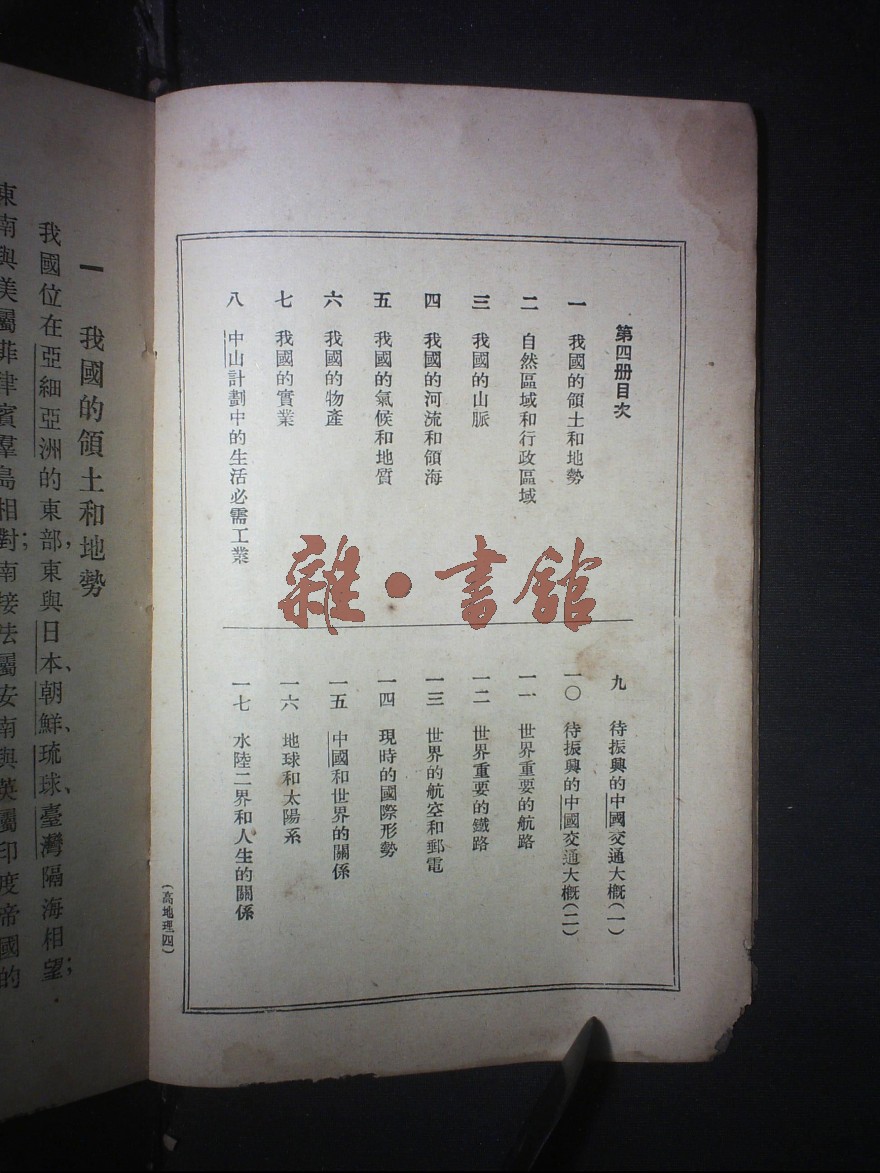 第四册目次
一　我國的領土和地勢
二　自然區域和行政區域
三　我國的山脈
四　我國的河流和領海
五　我國的氣候和地質
六　我國的物產
七　我國的實業
八　中山計劃中的生活必需工業
九　待振興的中國交通大概(一)
一〇　待振興的中國交通大概(二)
一一　世界重要的航路
一二　世界重要的鐵路
一三　世界的航空和郵電
一四　現時的國際形勢
一五　中國和世界的關係
一六　地球和太陽系
一七　水陸二界和人生的關係
(高地理四)
雜•書館
一　我國的領土和地勢
我國位在亞細亞洲的東部，東與日本、朝鮮、琉球、臺灣隔海相望；
東南與美屬菲律賓羣島相對；南接法屬安南與英屬印度帝國的